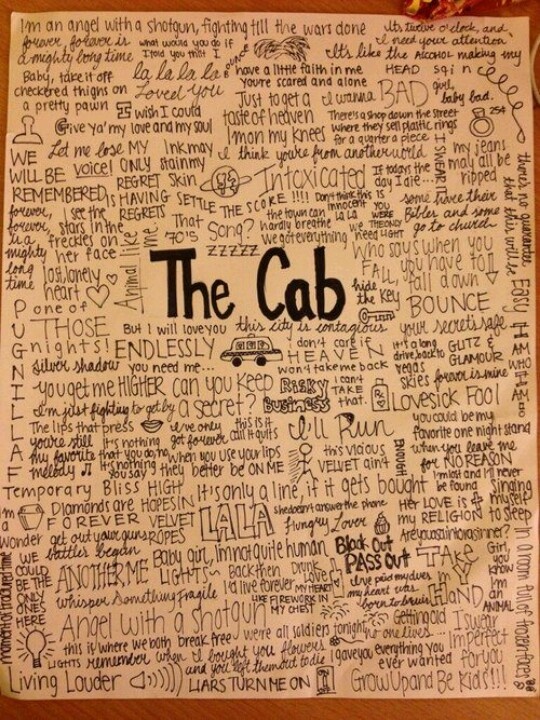 I'm an angel with a shotgun, fighting till the wars done
It's twelve o'clock, and
I need your attention
forever, forever is
a mighty long time
what would you do if
I told you that I
It's like the alcohol making my
HEAD spin
Baby, take it off
checkered thighs on
a pretty pawn
la la la la
Loved you
have a little faith in me
you're scared and alone
Just to get a
taste of heaven
I'm on my knees
I wanna BAD girl,
baby bad.
I wish I could
Give ya' my love and my soul
There's a shop down the street
where they sell plastic rings
for a quarter a piece
I SWEAR
254
WE
WILL BE
REMEMBERED
Let me lose MY
voice!
Ink may
ONLY stain my
skin
I think you're from another world
my jeans
may all be
ripped
there's no guarantee
that this will be
Easy
REGRET
IS HAVING
REGRETS
Intoxicated
If today's the
day I die...
SETTLE THE SCORE!!!!
Don't think this is
innocent
some have their
Bibles and some
go to church
forever,
forever,
is a
mighty
long
time
see the
stars in the
freckles on
her face
Animal like
me
That
70's
Song?
zzzzz
the town can
hardly breathe
la la
YOU WERE
THE ONLY
LIGHT
We got everything
we need
lost, lonely
heart
The Cab
Who says when you
FALL, you have to
fall down
hide
the key
BOUNCE
one of
THOSE
nights!
But I will love you
ENDLESSLY
this city is contagious
your secret's safe
PUGNILLAF
don't care if
HEAVEN
won't take me back
it's a long
drive back to
vegas
skies
GUTZ &
GLAMOUR
forever is mine
I AM WHO I AM
silver shadow
you need me...
you get me HIGHER
can you keep
a secret?
RISKY
BUSINESS
I can't
TAKE
that.
Lovesick Fool
I'm just fighting to get by
The lips that press
you're still
my favorite
melody
it's nothing
that you do, no
it's nothing
you say
I've only
got forever
this is it
call it quits
when you use your lips
they better be ON ME
I'll Run
this vicious
VELVET ain't
ENOUGH
you could be my
favorite one night stand
when you leave me
for NO REASON
I'm lost and I'll never
be found
singing
myself
to sleep
Temporary Bliss
HIGH
It's only a line, if it gets bought
Diamonds are
FOREVER
HOPES IN
VELVET
ROPES
LALA
she doesn't answer the phone
Hungry Lover
Her LOVE is
my RELIGION
Are you a saint or a sinner?
I'm
a
Wonder
get out your guns
battles begun
WE
COULD
BE THE
ONLY
ONES
HERE
Baby girl, im not quite human
Black Out
PASS OUT
TAKE
my
HAND
Girl,
you
know
I'm
an
ANIMAL
ANOTHER ME
LIGHTS
Back then
I'd live forever
Drunk
Love
MY HEART
LIKE FIREWORK IN
MY CHEST
I've paid my dues
my heart was
born to bruise
whisper Something Fragile
moment of fractured time
In a room full of frozen faces
Angel with a shotgun
this is where we both break free
we're all soldiers tonight
Getting old
no one lives...
I swear
Imperfect
for you
LIGHTS
remember when I bought you flowers
and you left them out to die
I gave you everything you
ever wanted
Living Louder
LIARS TURN ME ON
Grow Up and Be Kids!!!